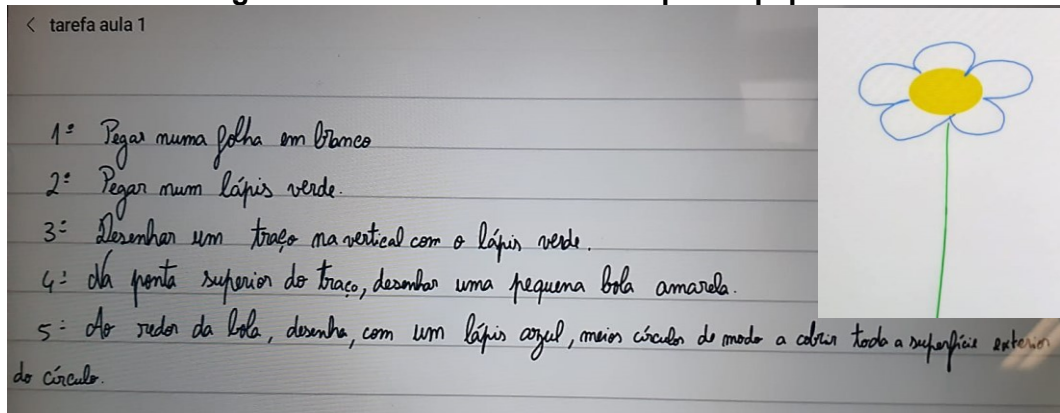 < tarefa aula 1
1º Pegar numa folha em branco
2º Pegar num lápis verde.
3º Desenhar um traço na vertical com o lápis verde.
4º Na ponta superior do traço, desenhar uma pequena bola amarela.
5º Ao redor da bola, desenha, com um lápis azul, meios círculos de modo a cobrir toda a superfície exterior
do círculo.